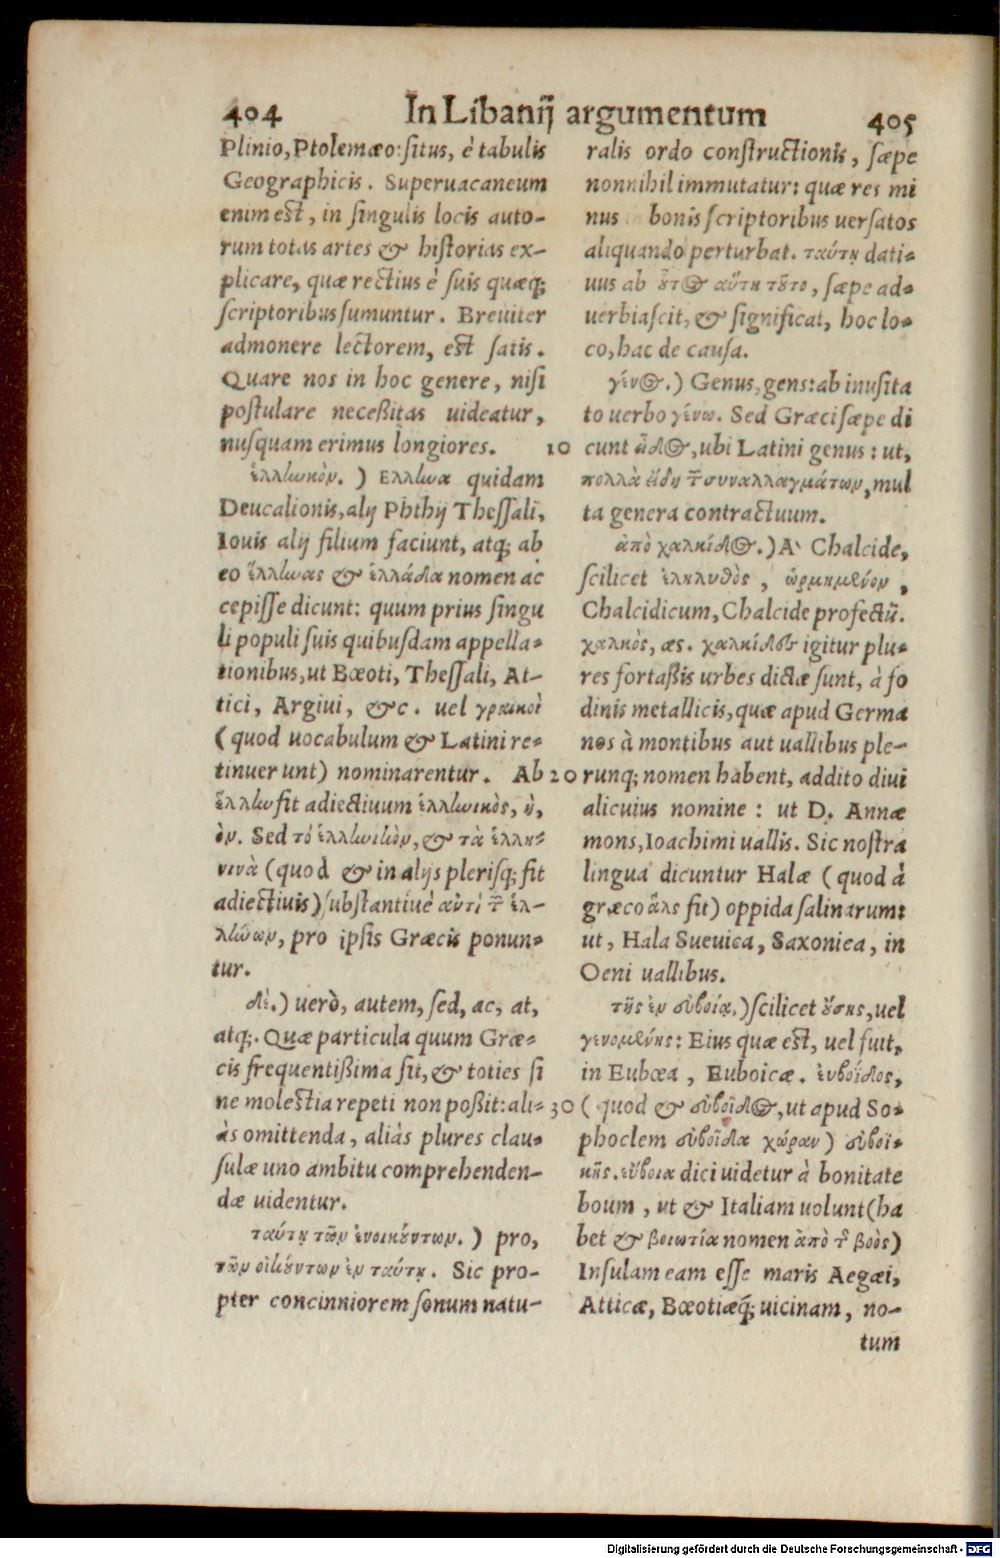 404 In Libanij argumentum 405
Plinio, Ptolemæo: situs, è tabulis
Geographicis. Superuacaneum
enim est, in singulis locis auto-
rum totas artes & historias ex-
plicare, quæ rectius è suis quæq;
scriptoribus sumuntur. Breuiter
admonere lectorem, est satis.
Quare nos in hoc genere, nisi
postulare neceßitas uideatur,
nusquam erimus longiores.
ἑλλίωικὸν.) Ελλίωα quidam
Deucalionis, alij Phthij Thessali,
Iouis alij filium faciunt, atq; ab
eo ἕλλίωας & ἑλλάδα nomen ac
cepisse dicunt: quum prius singu
li populi suis quibusdam appella-
tionibus, ut Bœoti, Thessali, At-
tici, Argiui, &c. uel γραικοὶ
(quod uocabulum & Latini re-
tinuerunt) nominarentur. Ab
ἕλλίω fit adiectiuum ἑλλίωικὸς, ἡ,
ὸν. Sed τὸ ἑλλίωικὸν, & τὰ ἑλλη-
νικὰ (quod & in alijs plerisq; fit
adiectiuis) substantiuè αὐτὶ τ῀ ἑλ-
λίωων, pro ipsis Græcis ponun-
tur.
δὲ.) uerò, autem, sed, ac, at,
atq;. Quæ particula quum Græ-
cis frequentißima sit, & toties si
ne molestia repeti non poßit: ali-
às omittenda, aliàs plures clau-
sulæ uno ambitu comprehenden-
dæ uidentur.
ταύτῃ τῶν ἐνοικούντων.) pro,
τῶν οἰκούντων ἐν ταύτῃ. Sic pro-
pter concinniorem sonum natu-
ralis ordo constructionis, sæpe
nonnihil immutatur: quæ res mi
nus bonis scriptoribus uersatos
aliquando perturbat. ταύτῃ dati-
uus ab οὗτος αὕτη τοῦτο, sæpe ad-
uerbiascit, & significat, hoc lo-
co, hac de causa.
γένος.) Genus, gens: ab inusita
to uerbo γένω. Sed Græci sæpe di
10 cunt εἶδος, ubi Latini genus: ut,
πολλὰ εἴδη τ῀ συναλλαγμάτων, mul
ta genera contractuum.
ἀπὸ χαλκίδος.) A` Chalcide,
scilicet ἐληλυθὸς, ὡρμημένον,
Chalcidicum, Chalcide profectũ.
χαλκὸς, æs. χαλκίδες igitur plu-
res fortaßis urbes dictæ sunt, à fo
dinis metallicis, quæ apud Germa
nos à montibus aut uallibus ple-
20 runq; nomen habent, addito diui
alicuius nomine: ut D. Annæ
mons, Ioachimi uallis. Sic nostra
lingua dicuntur Halæ (quod à
græco ἅλς fit) oppida salinarum:
ut, Hala Sueuica, Saxonica, in
Oeni uallibus.
τῆς ἐν εὐβοίᾳ.) scilicet οὔσης, uel
γενομένης: Eius quæ est, uel fuit,
in Eubœa, Euboicæ. εὐβοΐδος,
30 (quod & εὐβοῖδος, ut apud So-
phoclem εὐβοῖδα χώραν) εὐβοϊ-
κῆς. εὔβοια dici uidetur à bonitate
boum, ut & Italiam uolunt (ha
bet & βοιωτία nomen ἀπὸ τ῀ βοὸς)
Insulam eam esse maris Aegæi,
Atticæ, Bœotiæq; uicinam, no-
tum
Digitalisierung gefördert durch die Deutsche Forschungsgemeinschaft - DFG